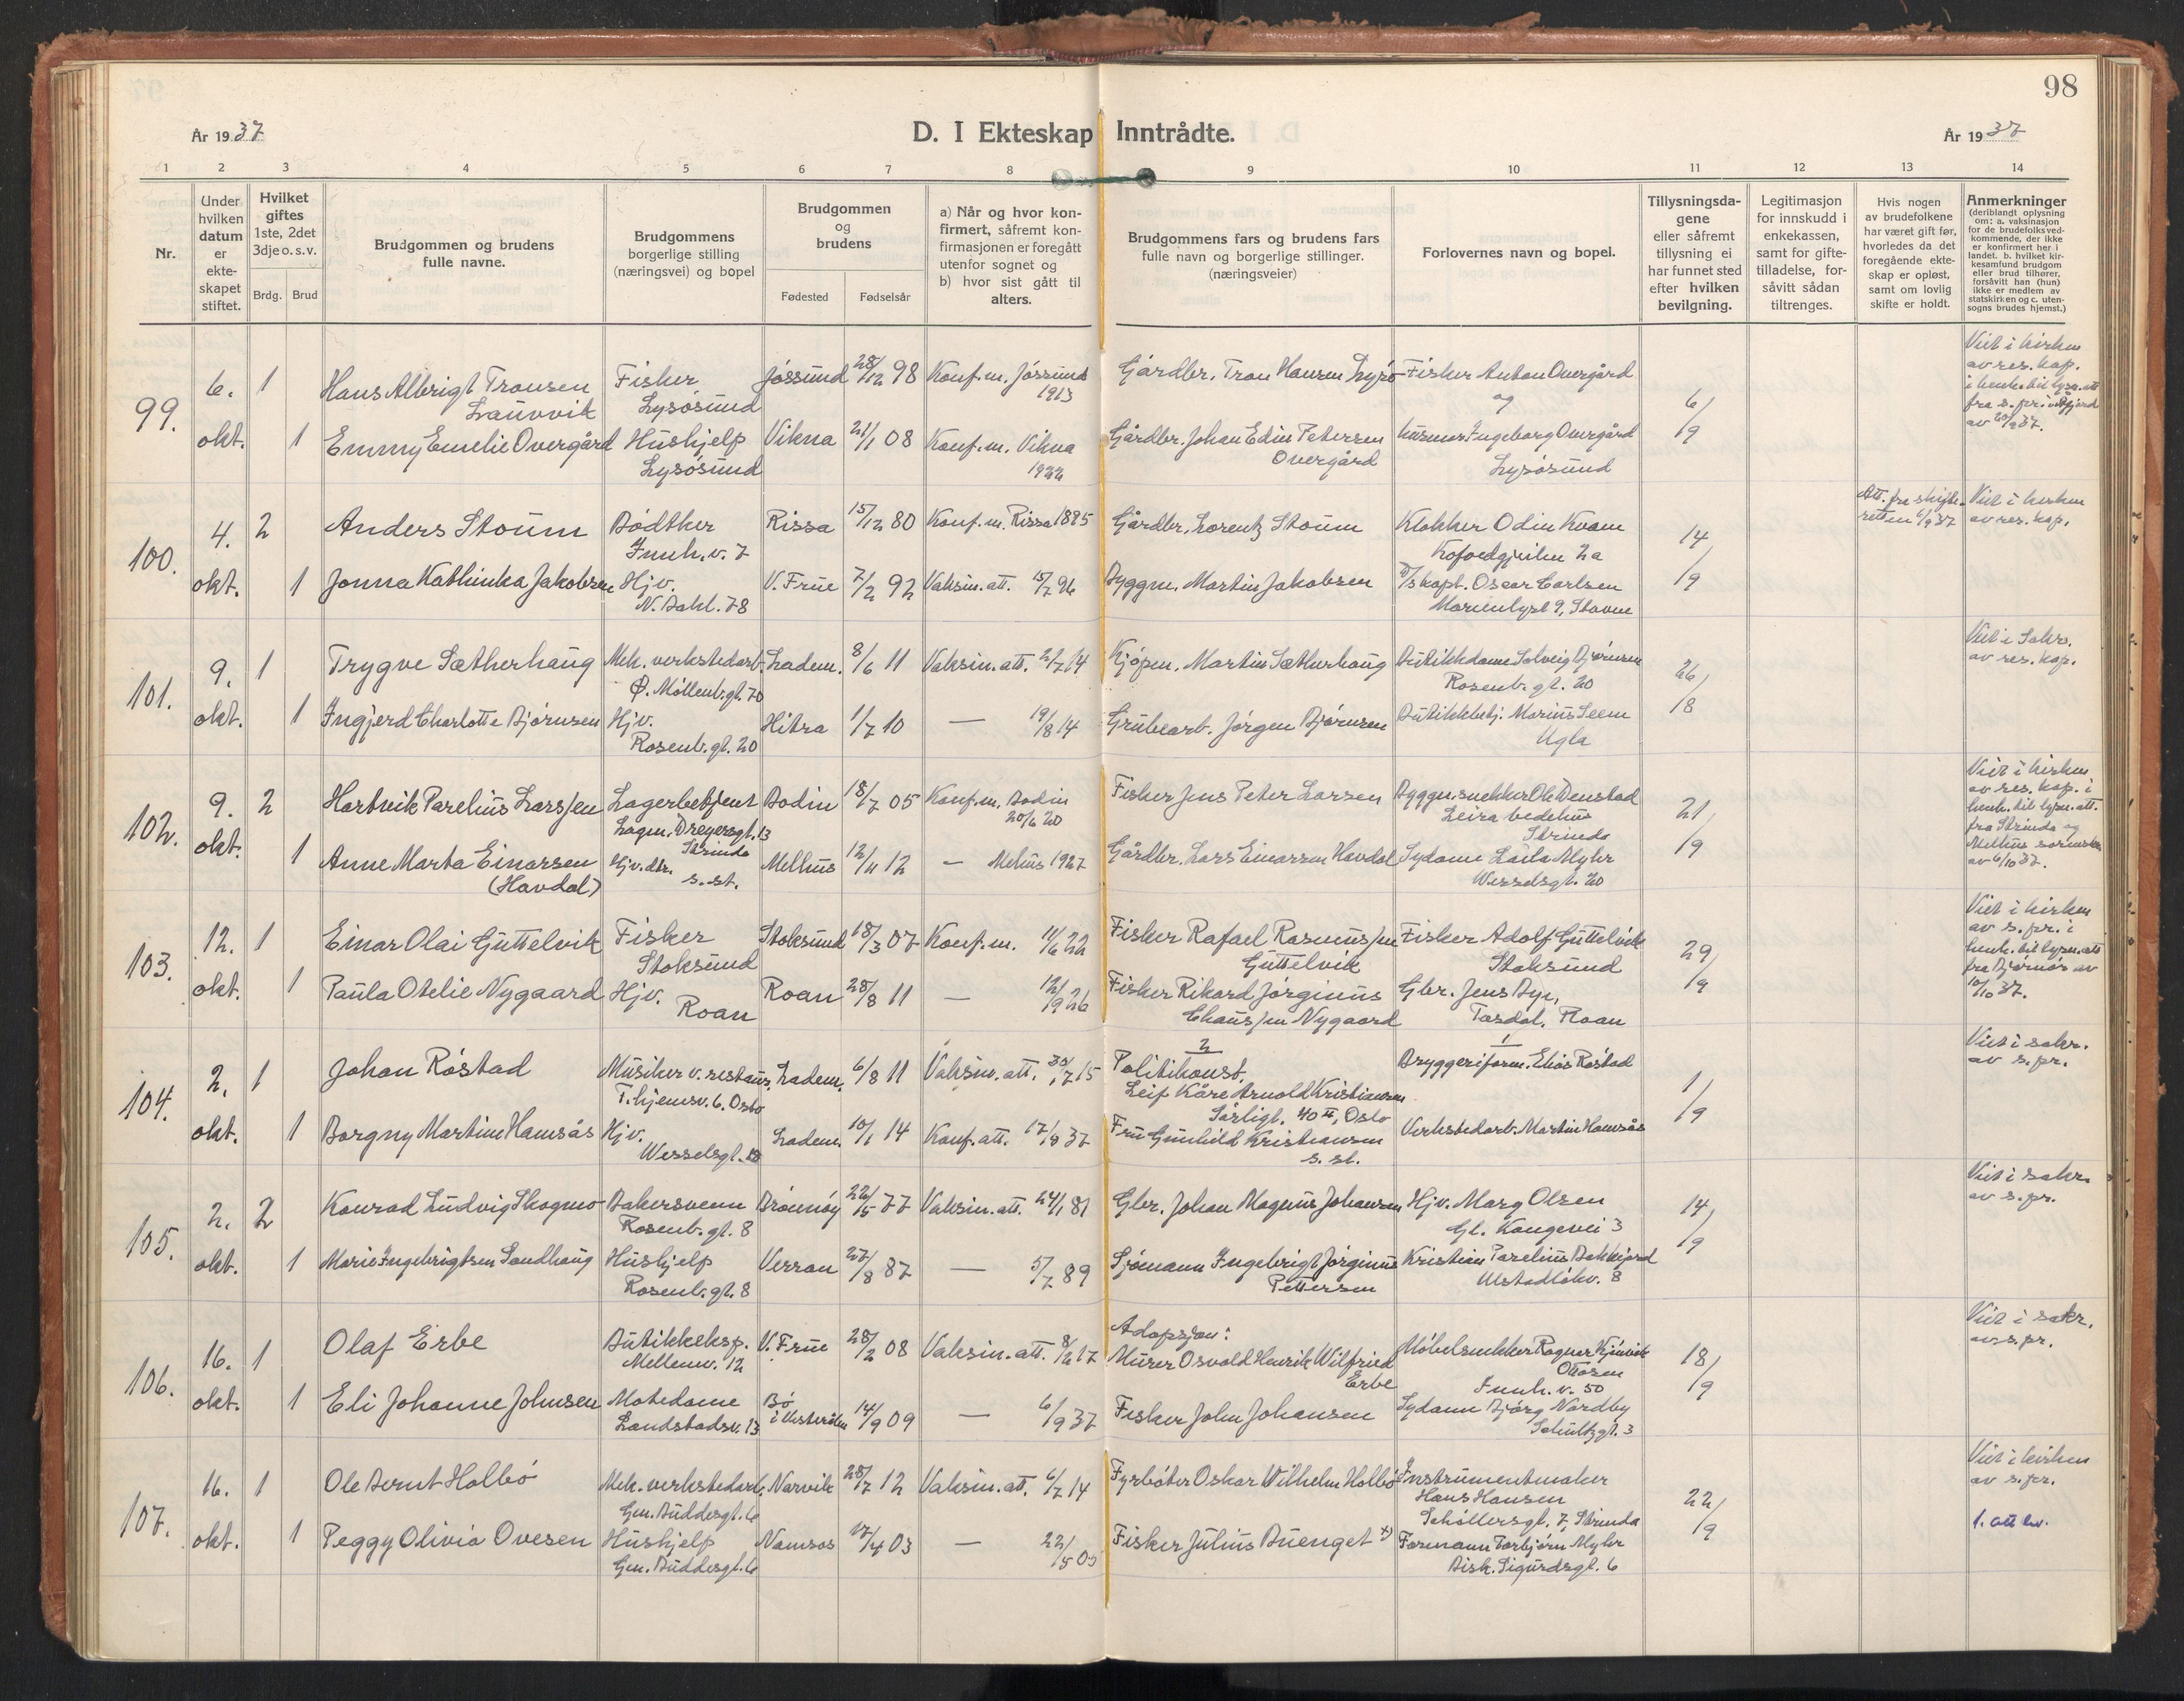 98
År 1937
D. I Ekteskap Inntrådte.
År 1937
1 2 3 4 5 6 7 8 9 10 11 12 13 14
Nr.
Under hvilken datum er ekteskapet stiftet.
Hvilket giftes 1ste, 2det 3dje o. s. v.
Brdg. Brud
Brudgommen og brudens fulle navne.
Brudgommens borgerlige stilling (næringsvei) og bopel
Brudgommen og brudens
Fødested Fødselsår
a) Når og hvor konfirmert, såfremt konfirmasjonen er foregått utenfor sognet og
b) hvor sist gått til alters.
Brudgommens fars og brudens fars fulle navn og borgerlige stillinger. (næringsveier)
Forlovernes navn og bopel.
Tillysningsdagene eller såfremt tillysning ei har funnet sted efter hvilken bevilgning.
Legitimasjon for innskudd i enkekassen, samt for giftetilladelse, forsåvitt sådan tiltrenges.
Hvis nogen av brudefolkene har været gift før, hvorledes da det foregående ekteskap er opløst, samt om lovlig skifte er holdt.
Anmerkninger (deriblandt oplysning om: a. vaksinasjon for de brudefolksvedkommende, der ikke er konfirmert her i landet. b. hvilket kirkesamfund brudgom eller brud tilhører, forsåvitt han (hun) ikke er medlem av statskirken og c. utensogns brudes hjemst.)
99. 6. okt. 1 Hans Albrigt Tronsen Lauvvik Fisker Lysøsund Jøssund 28/12 98 Konf. m. Jøssund 1913 Gårdbr. Tron Hansen Lysø Fisker Anton Overgård og 6/9
Viet i kirken av res. kap. i henh. til lysn. att. fra s. pr. i
1 Emmy Emelie Overgård Hushjelp Lysøsund Vikna 21/1 08 Konf. m. Vikna 1922 Gårdbr. Johan Edin Petersen Overgård husmor Ingeborg Overgård Lysøsund
100. 4. okt. 2 Anders Stoum Bødtker Innh. v. 7 Rissa 15/12 80 Konf. m. Rissa 1895 Gårdbr. Lorentz Stoum Klokker Odin Kvam 14/9
Att. fra skifteretten 1/9 37 Viet i kirken av res. kap.
1 Jonna Kathinka Jakobsen Hjv. N. Bakl. 78 V. Frue 7/2 92 Vaksin. att. 15/7 96 Byggm. Martin Jakobsen D/skapt. Oscar Carlsen Marienlyst 9, Staven
101. 9. okt. 1 Trygve Sætherhaug Mek. verkstedarb. Ø. Møllenb. gt. 70 Ladem. 8/6 11 Vaksin. att. 2/7 14 Kjøpm. Martin Sætherhaug Butikkdame Solveig Bjørnsen Rosenb. gt. 20 26/8
Viet i Sakr. av res. kap.
1 Ingjerd Charlotte Bjørnsen Hjv. Rosenb. gt. 20 Hitra 1/7 10 — 19/8 14 Grubearb. Jørgen Bjørnsen Butikkbetj. Marius Leem Ugla
102. 9. okt. 2 Hartvik Parelius Larssen Lagerbetjent Lagm. Dreyersgt. 13 Strinda Bodin 18/7 05 Konf. m. Bodin 20/6 20 Fisker Jens Peter Larsen Byggn. snekker Ole Denstad Leira bedehus Strinda 21/9
Viet i kirken av res. kap. i henh. til lysn. att. fra Strinda og Melhus av 6/10 37.
1 Anne Marta Einarsen (Havdal) Hjv. dtr. s. st. Melhus 12/11 12 — Melhus 1927 Gårdbr. Lars Einarsen Havdal Sydame Laila Myhr Wesselsgt. 20
103. 12. okt. 1 Einar Olai Guttelvik Fisker Stoksund Stoksund 18/3 07 Konf. m. 11/6 22 Fisker Rafael Rasmussen Guttelvik Fisker Adolf Guttelvik Stoksund 29/9
Viet i kirken av s. pr. i henh. til lysn. att fra Bjørnør av 10/10 37.
1 Paula Otelie Nygaard Hjv. Roan Roan 28/8 11 — 12/9 26 Fisker Rikard Jørginus Chaussen Nygaard Gbr. Jens Bye, Tårdal, Roan
104. 2. okt. 1 Johan Røstad Musiker v. restaur. T. hjemsv. 6. Oslo Ladem. 6/8 11 Vaksin. att. 30/7 15 2 Politikonst. Leif Kåre Arnold Kristiansen Sarligt. 40 II, Oslo 1 Bryggeriform. Elias Røstad 1/9
Viet i sakr. av s. pr.
1 Borgny Martine Hamsås Hjv. Wesselsgt. 18 Ladem. 10/1 14 Konf. att. 17/8 37 Fru Gunhild Kristiansen s. st. Verkstedarb. Martin Hamsås
105. 2. okt. 2 Konrad Ludvig Skogmo Bakersvenn Rosenb. gt. 8 Brønnøy 22/5 77 Vaksin. att. 24/1 81 Gbr. Johan Magnus Johansen Hjv. Marg Olsen Gl. Kongevei 3 14/9
Viet i sakr. av s. pr.
1 Marie Ingebrigtsen Sandhaug Hushjelp Rosenb. gt. 8 Verran 27/8 87 — 5/7 89 Sjømann Ingebrigt Jørginus Pettersen Kristian Parelius Bakkejord Ulstadløkv. 8
106. 16. okt. 1 Olaf Erbe Butikkeksp. Mellemv. 12 V. Frue 28/2 08 Vaksin. att. 8/2 17 Adopsjon: Murer Osvald Henrik Wilfried Erbe Møbelsnekker Ragnar Kjinvik Ottosen Innh. v. 50 18/9
Viet i sakr. av s. pr.
1 Eli Johanne Johnsen Motedame Landstadsv. 13 Bø i Vesterålen 14/9 09 — 6/9 37 Fisker John Johansen Sydame Bjørg Nordby Schultzgt. 3
107. 16. okt. 1 Ole Bernt Holbø Mek. verkstedarb. Gen. Buddesgt. 6 Narvik 28/7 12 Vaksin. att. 6/7 14 Fyrbøter Oskar Wilhelm Holbø Instrumentmaker Hans Hansen Schøllersgt. 7, Strinda 22/9
Viet i kirken av s. pr.
1 Peggy Olivia Ovesen Hushjelp Gen. Buddesgt. 6 Namsos 17/4 03 — 22/5 05 Fisker Julius Buenget x) Formann Torbjørn Myhr Bisk. Sigurdsgt. 6